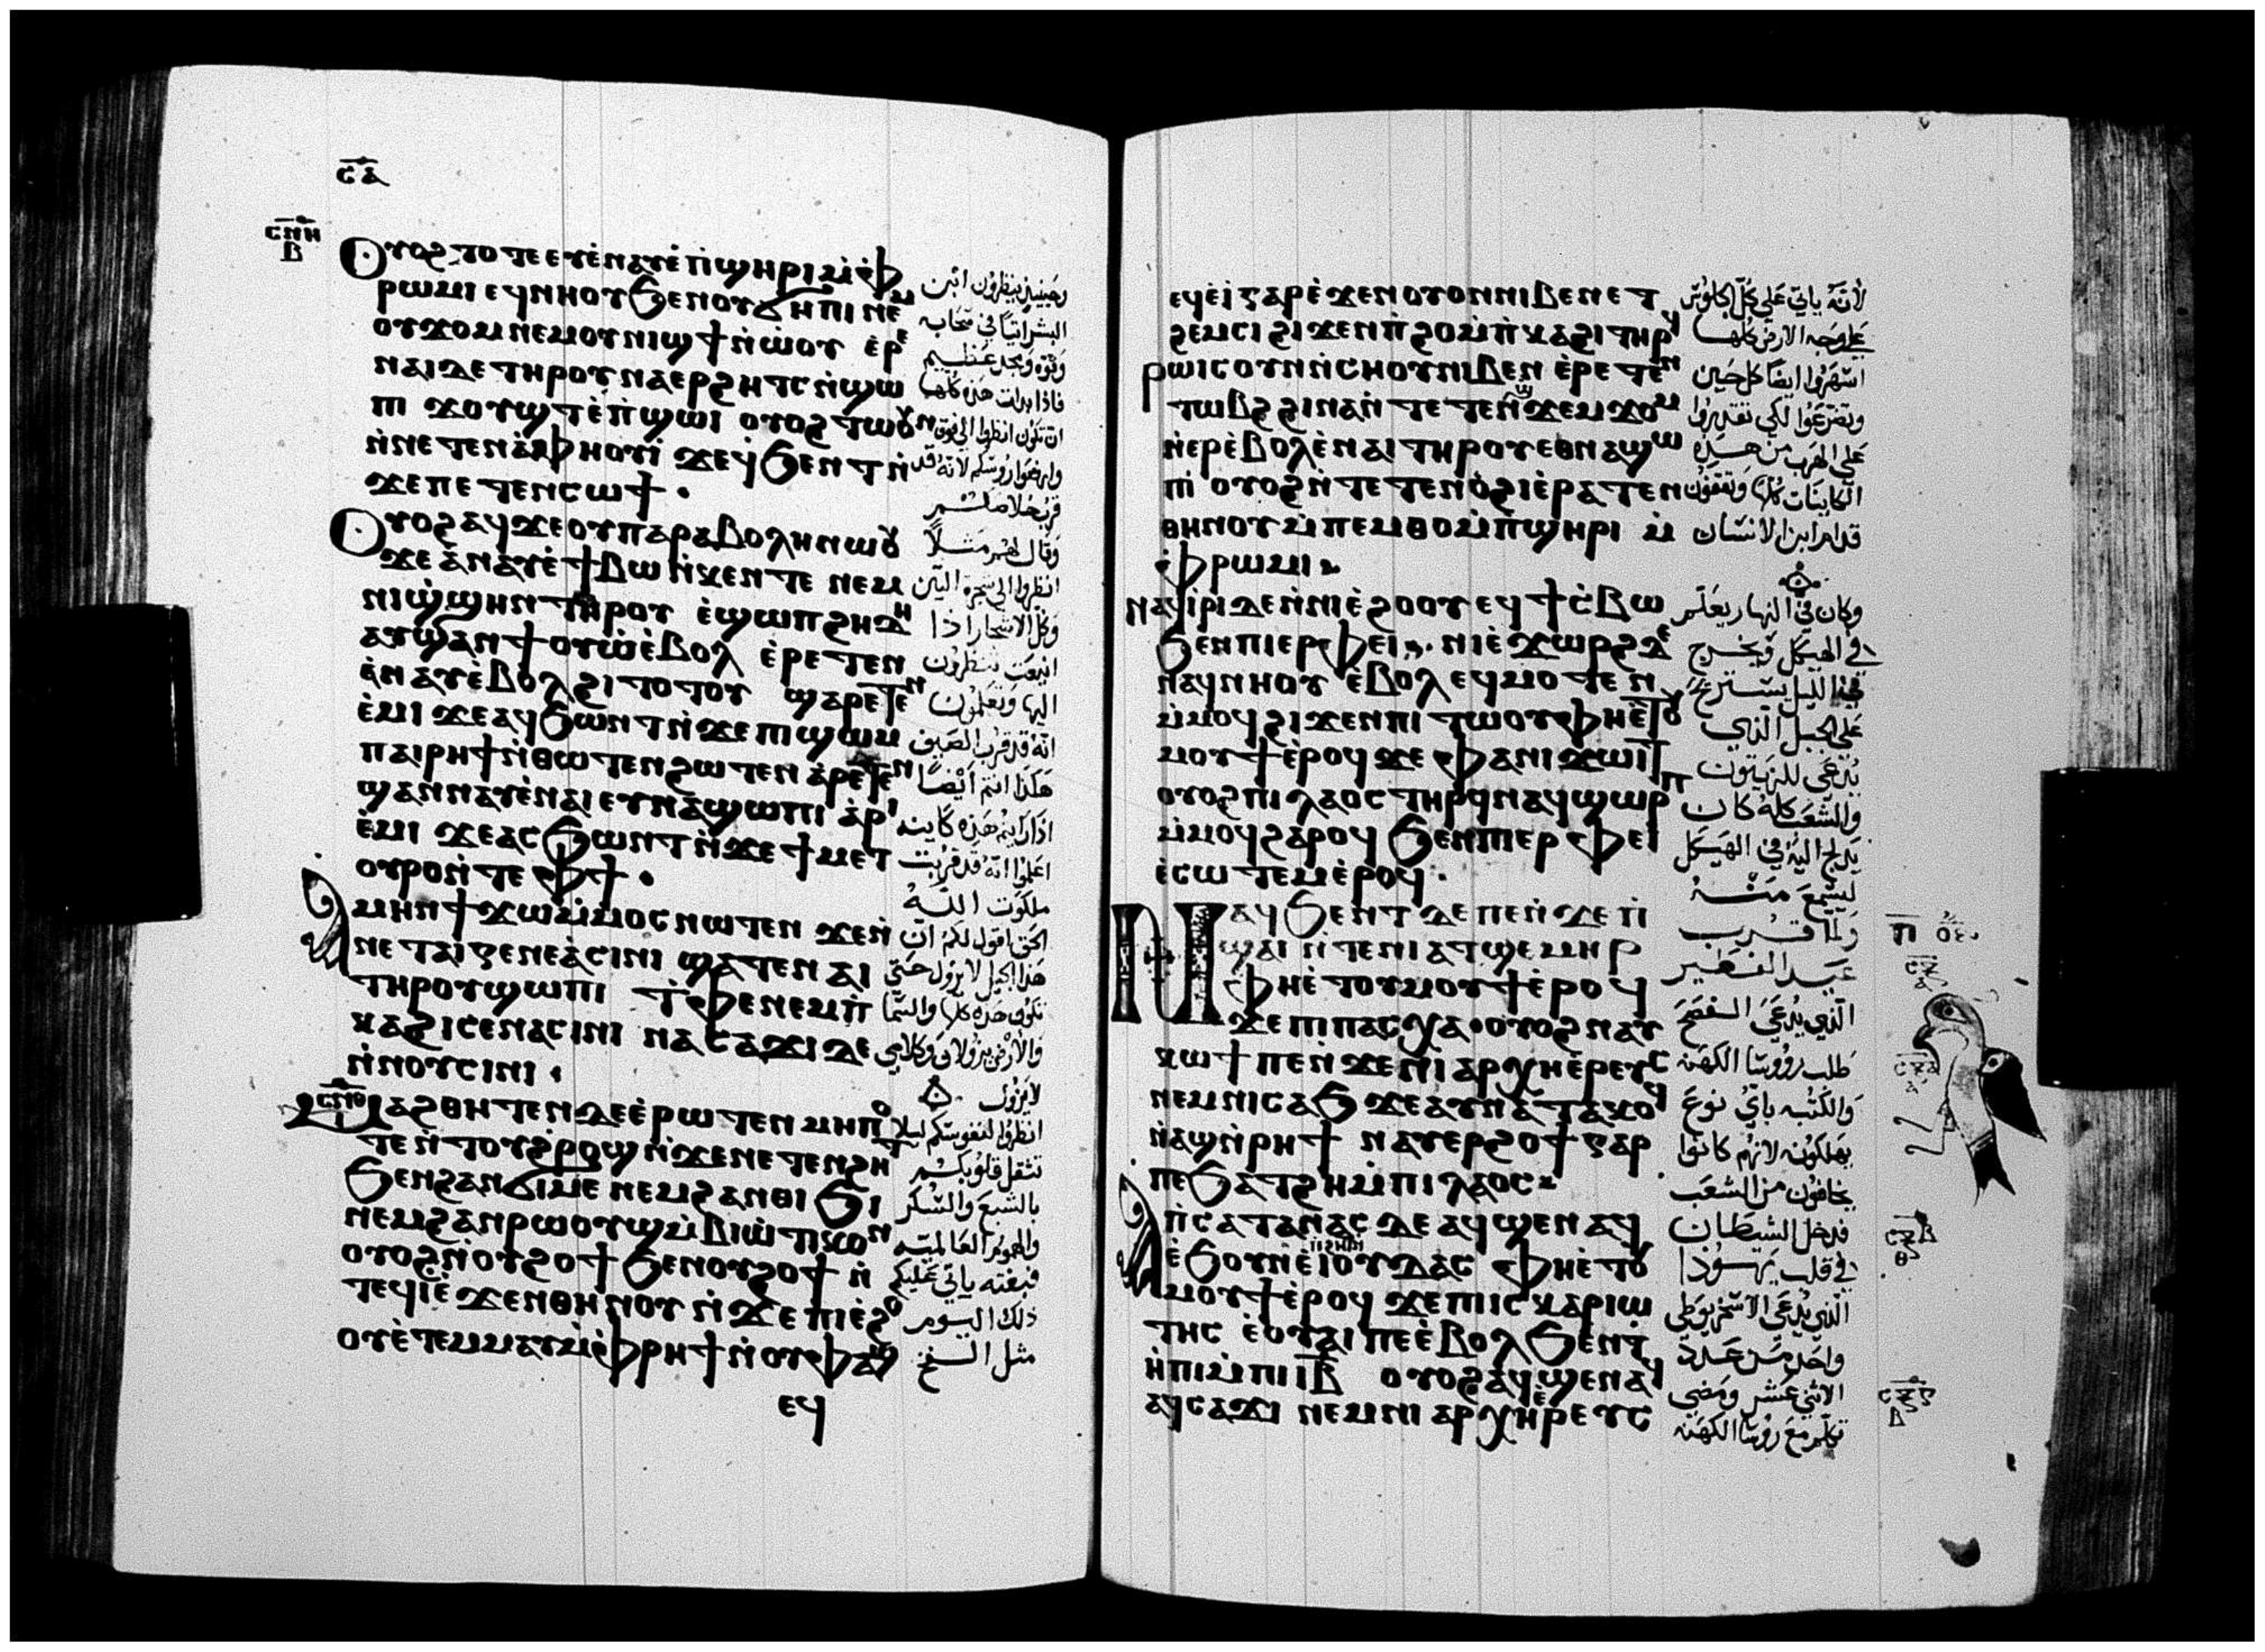 ⲥⲁ
ⲥⲛⲏ
ⲃ
Ⲟⲩⲟϩ ⲧⲟⲧⲉ ⲉⲩⲉ̀ⲛⲁⲩⲉ̀ ⲡ̀ϣⲏⲣⲓ ⲙ̀ⲫ̀
ⲣⲱⲙⲓ ⲉϥⲛⲏⲟⲩ ϧⲉⲛ ⲟⲩϭⲏⲡⲓ ⲛⲉⲙ
ⲟⲩϫⲟⲙ ⲛⲉⲙ ⲟⲩⲛⲓϣϯ ⲛ̀ⲱ̀ⲟⲩ ⲉ̀ⲣⲉ
ⲛⲁⲓ ⲇⲉ ⲧⲏⲣⲟⲩ ⲛⲁⲉⲣϩⲏⲧⲥ ⲛ̀ϣⲱ
ⲡⲓ ϫⲟⲩϣⲧ ⲉ̀ⲡ̀ϣⲱⲓ ⲟⲩⲟϩ ⲧⲱⲟⲩⲛ
ⲛ̀ⲛⲉⲧⲉⲛⲁ̀ⲫⲏⲟⲩⲓ̀ ϫⲉ ϥ̀ϧⲉⲛⲧ ⲛ̀
ϫⲉ ⲡⲉⲧⲉⲛⲥⲱϯ ·
Ⲟⲩⲟϩ ⲁϥϫⲉ ⲟⲩⲡⲁⲣⲁⲃⲟⲗⲏ ⲛⲱⲟⲩ
ϫⲉ ⲁ̀ⲛⲁⲩ ⲉ̀ ϯⲃⲱ ⲛ̀ⲕⲉⲛⲧⲉ ⲛⲉⲙ
ⲛⲓϣ̀ϣⲏⲛ ⲧⲏⲣⲟⲩ ⲉ̀ϣⲱⲡ ϩⲏⲇⲏ
ⲁⲩϣⲁⲛϯⲟⲩⲱ̀ ⲉ̀ⲃⲟⲗ ⲉ̀ⲣⲉⲧⲉⲛ
ⲉ̀ⲛⲁⲩ ⲉ̀ⲃⲟⲗϩⲓⲧⲟⲧⲟⲩ ϣⲁⲣⲉⲧⲉⲛ
ⲉ̀ⲙⲓ ϫⲉ ⲁϥϧⲱⲛⲧ ⲛ̀ϫⲉ ⲡⲓϣⲱⲙ
ⲡⲁⲓⲣⲏϯ ⲛ̀ⲑⲱⲧⲉⲛ ϩⲱⲧⲉⲛ ⲁ̀ⲣⲉⲧⲉⲛ
ϣⲁⲛⲛⲁⲩ ⲉ̀ⲛⲁⲓ ⲉⲩⲛⲁϣⲱⲡⲓ ⲁ̀ⲣⲓ
ⲉ̀ⲙⲓ ϫⲉ ⲁⲥϧⲱⲛⲧ ⲛ̀ϫⲉ ϯⲙⲉⲧ
ⲟⲩⲣⲟ ⲛ̀ⲧⲉ ⲫϯ ·
Ⲁⲙⲏⲛ ϯϫⲱ ⲙ̀ⲙⲟⲥ ⲛⲱⲧⲉⲛ ϫⲉ ⲛ̀
ⲛⲉ ⲧⲁⲓⲅⲉⲛⲉⲁ̀ ⲥⲓⲛⲓ ϣⲁⲧⲉ ⲛⲁⲓ
ⲧⲏⲣⲟⲩ ϣⲱⲡⲓ ⲧ̀ⲫⲉ ⲛⲉⲙ ⲡ̀
ⲕⲁϩⲓ ⲥⲉⲛⲁⲥⲓⲛⲓ ⲛⲁⲥⲁϫⲓ ⲇⲉ
ⲛ̀ⲛⲟⲩⲥⲓⲛⲓ ·
ⲥⲛⲑ
Ⲙⲁϩⲑⲏⲧⲉⲛ ⲇⲉ ⲉ̀ⲣⲱⲧⲉⲛ ⲙⲏⲡⲟ
ⲧⲉ ⲛ̀ⲧⲟⲩϩ̀ⲣⲟϣ ⲛ̀ϫⲉ ⲛⲉⲧⲉⲛϩⲏⲧ
ϧⲉⲛ ϩⲁⲛϭⲓⲛⲉ ⲛⲉⲙ ϩⲁⲛⲑⲓϧⲓ
ⲛⲉⲙ ϩⲁⲛⲣⲱⲟⲩϣ ⲙ̀ⲃⲓⲱ̀ⲧⲓⲕⲟⲛ
ⲟⲩⲟϩ ⲛ̀ⲟⲩϩⲟϯ ϧⲉⲛ ⲟⲩϩⲟϯ ⲛ̀
ⲧⲉϥⲓ̀ ⲉ̀ϫⲉⲛ ⲑⲏⲛⲟⲩ ⲛ̀ϫⲉ ⲡⲓⲉ̀ϩⲟ
ⲟⲩ ⲉ̀ⲧⲉⲙⲙⲁⲩ ⲙ̀ⲫ̀ⲣⲏϯ ⲛ̀ⲟⲩⲫⲁϣ
ⲉϥ
وحينيذ ينظرون ابن
البشر اتيًا في سحابه
وقوه ومجد عظيم
فاذا بدات هذه كلها
ان تكون انظروا الي فوق
وارفعوا روسكم لانه قد
قرب خلاصكم
وقال لهم مثلاً
انظروا الي شجرة التين
وكل الاشجار اذا
انبعت تنظرون
اليها وتعلمون
انه قد قرب الصيف
هكذا انتم ايضًا
اذا رايتم هذه كاينه
اعلموا انه قد قربت
ملكوت الله
الحق اقول لكم ان
هذا الجيل لا يزول حتى
تكون هذه كلها والسما
والارض يزولان وكلامي
لا يزول
انظروا لنفوسكم ليلا
تثقل قلوبكم
بالشبع والسكر
والهموم العالميه
فبغته ياتي عليكم
ذلك اليوم
مثل الفخ
ⲉϥⲉ̀ⲓ̀ ⲅⲁⲣ ⲉ̀ϫⲉⲛ ⲟⲩⲟⲛ ⲛⲓⲃⲉⲛ ⲉⲧ
ϩⲉⲙⲥⲓ ϩⲓϫⲉⲛ ⲡ̀ϩⲟ ⲙ̀ⲡ̀ⲕⲁϩⲓ ⲧⲏⲣϥ
ⲣⲱⲓⲥ ⲟⲩⲛ ⲛ̀ⲥⲏⲟⲩ ⲛⲓⲃⲉⲛ ⲉ̀ⲣⲉⲧⲉⲛ
ⲧⲱⲃϩ ϩⲓⲛⲁ ⲛ̀ⲧⲉⲧⲉⲛϣϫⲉⲙϫⲟⲙ
ⲛ̀ⲉⲣⲉ̀ⲃⲟⲗ ⲉ̀ⲛⲁⲓ ⲧⲏⲣⲟⲩ ⲉⲑⲛⲁϣⲱ
ⲡⲓ ⲟⲩⲟϩ ⲛ̀ⲧⲉⲧⲉⲛⲟ̀ϩⲓ ⲉ̀ⲣⲁⲧⲉⲛ
ⲑⲏⲛⲟⲩ ⲙ̀ⲡⲉⲙⲑⲟ ⲙ̀ⲡ̀ϣⲏⲣⲓ ⲙ̀
ⲫ̀ⲣⲱⲙⲓ
ⲛⲁϥⲓ̀ⲣⲓ ⲇⲉ ⲛ̀ⲛⲓⲉ̀ϩⲟⲟⲩ ⲉϥϯⲥ̀ⲃⲱ
ϧⲉⲛ ⲡⲓⲉⲣⲫⲉⲓ ⲛⲓⲉ̀ϫⲱⲣϩ ⲇⲉ
ⲛⲁϥⲛⲏⲟⲩ ⲉ̀ⲃⲟⲗ ⲉϥⲙⲟⲧⲉⲛ
ⲙ̀ⲙⲟϥ ϩⲓϫⲉⲛ ⲡⲓⲧⲱⲟⲩ ⲫⲏⲉ̀ⲧⲟⲩ
ⲙⲟⲩϯ ⲉ̀ⲣⲟϥ ϫⲉ ⲫⲁ ⲛⲓϫⲱⲓⲧ
ⲟⲩⲟϩ ⲡⲓⲗⲁⲟⲥ ⲧⲏⲣϥ ⲛⲁϥϣⲱⲣⲡ
ⲙ̀ⲙⲟϥ ϩⲁⲣⲟϥ ϧⲉⲛ ⲡⲓⲉⲣⲫⲉⲓ
ⲉ̀ⲥⲱⲧⲉⲙ ⲉ̀ⲣⲟϥ ·
Ⲛⲁϥϧⲉⲛⲧ ⲇⲉ ⲡⲉ ⲛ̀ϫⲉ ⲡ̀
ϣⲁⲓ ⲛ̀ⲧⲉ ⲛⲓⲁⲧϣⲉⲙⲏⲣ
ⲫⲏⲉ̀ⲧⲟⲩⲙⲟⲩϯ ⲉ̀ⲣⲟϥ
ϫⲉ ⲡⲓⲡⲁⲥⲭⲁ · ⲟⲩⲟϩ ⲛⲁⲩ
ⲕⲱϯ ⲡⲉ ⲛ̀ϫⲉ ⲛⲓⲁⲣⲭⲏⲉ̀ⲣⲉⲩⲥ
ⲛⲉⲙ ⲛⲓⲥⲁϧ ϫⲉ ⲁⲩⲛⲁⲧⲁⲕⲟϥ
ⲛ̀ⲁϣ ⲛ̀ⲣⲏϯ ⲛⲁⲩⲉⲣϩⲟϯ ⲅⲁⲣ
ⲡⲉ ϧⲁⲧϩⲏ ⲙ̀ⲡⲓⲗⲁⲟⲥ
Ⲁ ⲡ̀ⲥⲁⲧⲁⲛⲁⲥ ⲇⲉ ⲁϥϣⲉⲛⲁϥ
ⲉ̀ϧⲟⲩⲛ ⲉ̀ ⲓⲟⲩⲇⲁⲥ ⲫⲏⲉ̀ⲧⲟⲩ
ⲙⲟⲩϯ ⲉ̀ⲣⲟϥ ϫⲉ ⲡⲓⲥⲕⲁⲣⲓⲱ
ⲧⲏⲥ ⲉ̀ⲟⲩⲁⲓ ⲡⲉ ⲉ̀ⲃⲟⲗ ϧⲉⲛ ⲧ̀
ⲏ̀ⲡⲓ ⲙ̀ⲡⲓⲓⲃ ⲟⲩⲟϩ ⲁϥϣⲉⲛⲁϥ
ⲁϥⲥⲁϫⲓ ⲛⲉⲙ ⲛⲓⲁⲣⲭⲏⲉ̀ⲣⲉⲩⲥ
لانه ياتي على كل الجلوس
على وجه الارض كلها
اسهروا ايضًا كل حين
وتضرعوا لكي تقتدروا
على الهرب من هذه
الكاينات كلها وتقفون
قدام ابن الانسان
وكان في النهار يعلم
في الهيكل ويخرج
في الليل يستريح
على الجبل الذي
يدعي للزيتون
والشعب كله كان
يدلج اليه في الهيكل
ليسمع منه
ولما قرب
عيد الفطير
الذي يدعى الفصح
طلب رووسا الكهنه
والكتبه باي نوع
يهلكونه لانهم كانوا
يخافون من الشعب
فدخل الشيطان
في قلب يهودا
الذي يدعى الاسخريوطي
واحد من عدد
الاثني عشر ومضى
تكلم مع روسا الكهنه